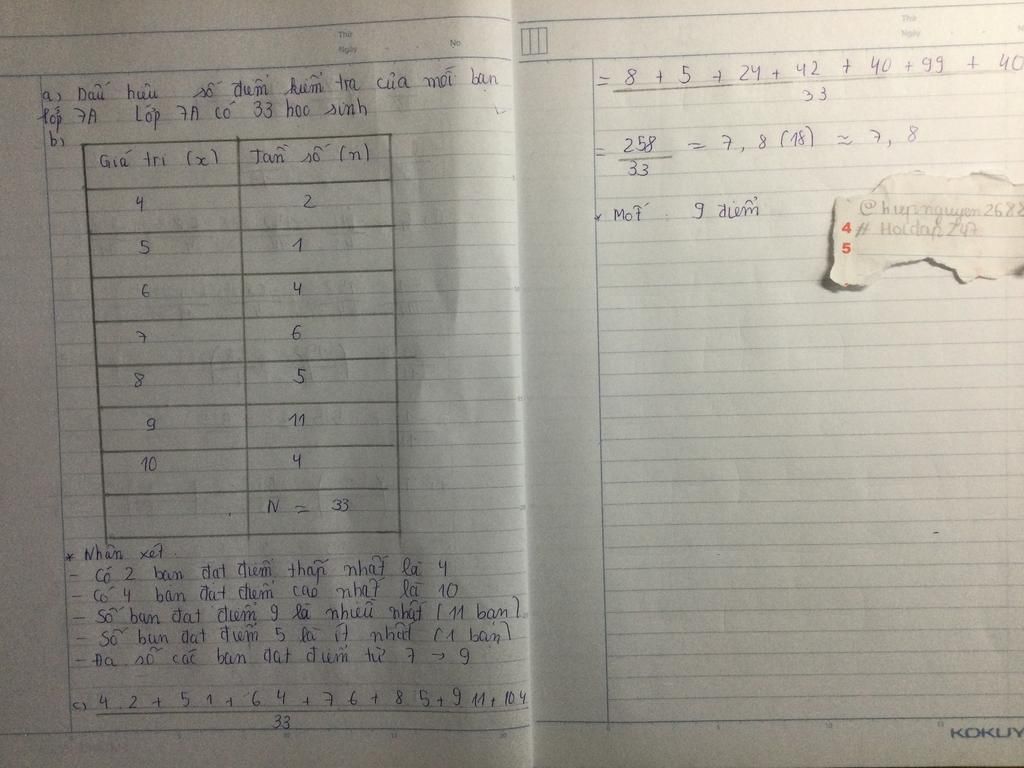 Thứ
Ngày
No.
a, Dấu hiệu số điểm kiểm tra của mỗi bạn
lớp 7A Lớp 7A có 33 học sinh
b,
Giá trị (x) Tần số (n)
4 2
5 1
6 4
7 6
8 5
9 11
10 4
N = 33
* Nhận xét
- Có 2 bạn đạt điểm thấp nhất là 4
- Có 4 bạn đạt điểm cao nhất là 10
- Số bạn đạt điểm 9 là nhiều nhất (11 bạn)
- Số bạn đạt điểm 5 là ít nhất (1 bạn)
- Đa số các bạn đạt điểm từ 7 → 9
c, 4 2 + 5 1 + 6 4 + 7 6 + 8 5 + 9 11 + 10 4
33
Thứ
Ngày
= 8 + 5 + 24 + 42 + 40 + 99 + 40
33
= 258 = 7, 8 (18) ≈ 7, 8
33
* Mốt : 9 điểm
@hiepnguyen2682
4 # Hoidap247
5
KOKUY